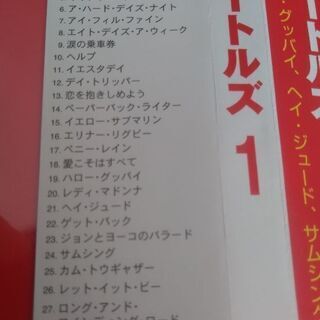 6. ア・ハード・デイズ・ナイト
7. アイ・フィル・ファイン
8. エイト・デイズ・ア・ウィーク
9. 涙の乗車券
10. ヘルプ
11. イエスタデイ
12. デイ・トリッパー
13. 恋を抱きしめよう
14. ペーパーバック・ライター
15. イエロー・サブマリン
16. エリナー・リグビー
17. ペニー・レイン
18. 愛こそはすべて
19. ハロー・グッバイ
20. レディ・マドンナ
21. ヘイ・ジュード
22. ゲット・バック
23. ジョンとヨーコのバラード
24. サムシング
25. カム・トゥギャザー
26. レット・イット・ビー
27. ロング・アンド・
ートルズ 1
グッバイ、ヘイ・ジュード、サムシング